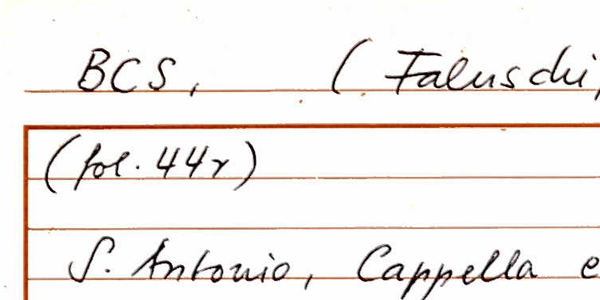 BCS, (Faluschi,
(fol. 44r)
S. Antonio, Cappella e